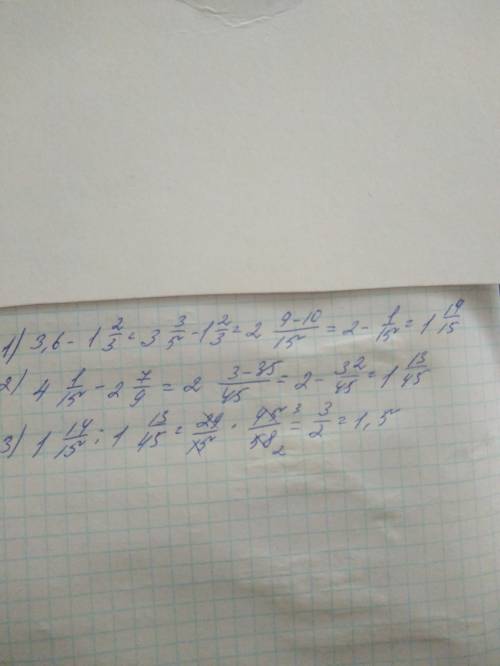 1) 3,6 - 1 2/3 = 3 3/5 - 1 2/3 = 2 9-10/15 = 2 - 1/15 = 1 14/15
2) 4 1/15 - 2 7/9 = 2 3-35/45 = 2 - 32/45 = 1 13/45
3) 1 14/15 : 1 13/45 = 29/15 · 45 3/58 2 = 3/2 = 1,5